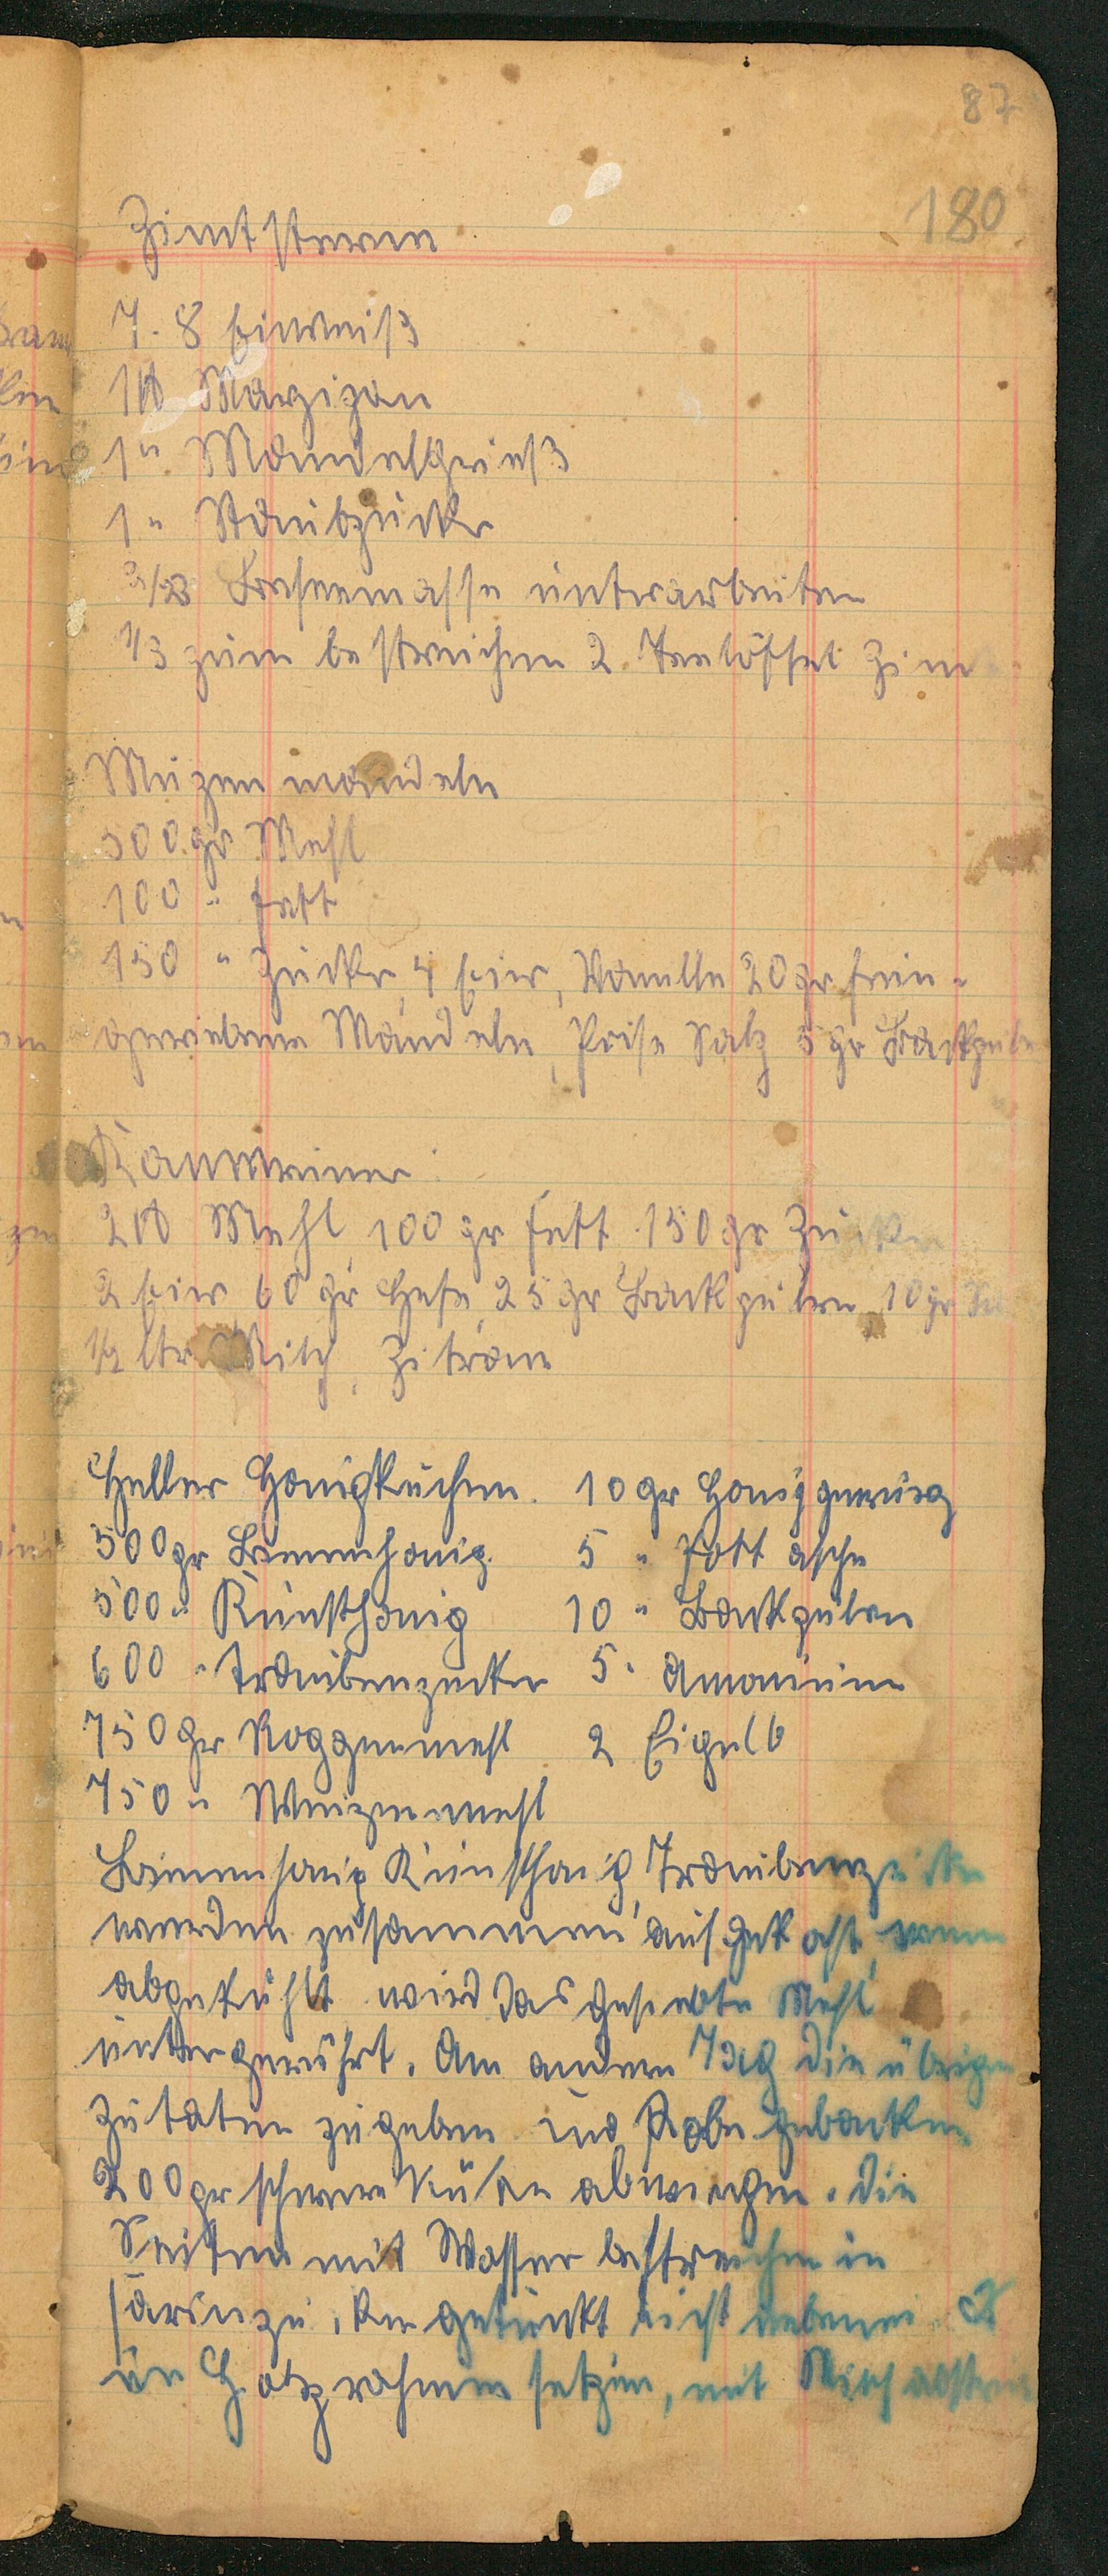 87
180
Zimtsterne
7-8 Eiweiß
1 ℔ Marzipan
1 " Mandelgrieß
1 " Staubzucker
2/3 Baisermasse unterarbeiten
1/3 zum bestreichen 2 Teelöffel Zim
Muzenmandeln
500 gr Mehl
100 " Fett
150 " Zucker, 4 Eier, Vanille 20 gr fein-
geriebene Mandeln, Prise Salz 5 gr Backpulve
2 ℔ Mehl 100 gr Fett 150 gr Zucker
2 Eier 60 gr Hefe, 25 gr Backpulver, 10 gr
1/2 ltr Milch, Zitrone
Heller Honigkuchen. 10 gr Honiggewürz
500 gr Bienenhonig. 5 " Pottasche
500 " Kunsthonig 10 " Backpulver
600 " Traubenzucker 5 " Amonium
750 gr Roggenmehl 2 Eigelb
750 " Weizenmehl
Bienenhonig Kunsthonig, Traubenzucker
werden zusammen aufgekocht, wenn
abgekühlt wird das gesiebte Mehl
untergerührt. Am andern Tag die übrigen
Zutaten zugeben und Probe gebacken.
200 gr schwere abwiegen. die
Seiten mit Wasser bestreichen in
getunkt
Holzrahmen setzen, mit Milch abstrei